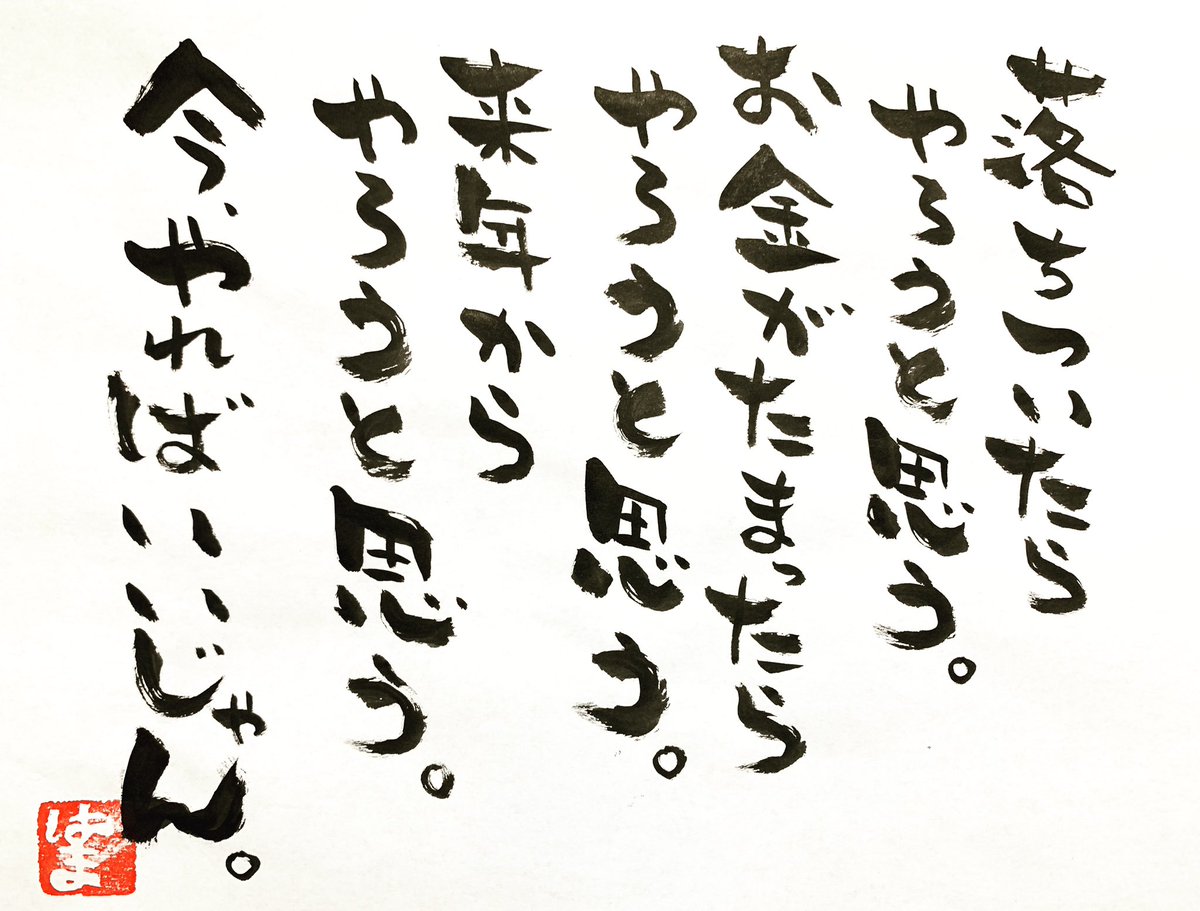 落ちついたら
やろうと思う。
お金がたまったら
やろうと思う。
来年から
やろうと思う。
今、やればいいじゃん。
はま